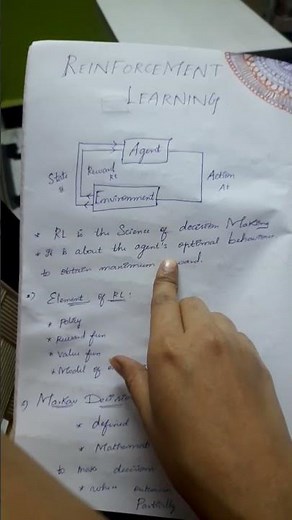 REINFORCEMENT
LEARNING
Agent
State
St
Reward
Rt
Action
At
Environment
* RL is the Science of decision Making
* It is about the agent's optimal behaviour
to obtain maximum
Element of RL:
* Policy
* Reward fun
* Value fun
* Model of
Markov Decision
* defined
* Mathemat
to make decisions
* when outcome
Partially